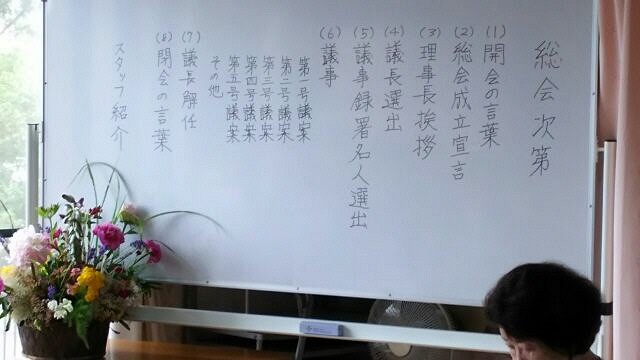 総会次第
(1) 開会の言葉
(2) 総会成立宣言
(3) 理事長挨拶
(4) 議長選出
(5) 議事録署名人選出
(6) 議事
第一号議案
第二号議案
第三号議案
第四号議案
第五号議案
その他
(7) 議長解任
(8) 閉会の言葉
スタッフ紹介